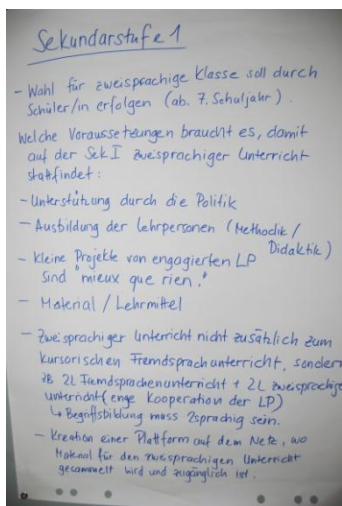 Sekundarstufe 1
- Wahl für zweisprachige Klasse soll durch
Schüler/in erfolgen (ab. 7. Schuljahr).
Welche Voraussetzungen braucht es, damit
auf der Sek I zweisprachiger Unterricht
stattfindet:
- Unterstützung durch die Politik
- Ausbildung der Lehrpersonen (Methodik /
Didaktik)
- kleine Projekte von engagierten LP
sind "mieux que rien."
- Material / Lehrmittel
- Zweisprachiger Unterricht nicht zusätzlich zum
kursorischen Fremdsprachunterricht, sondern
zB 2L Fremdsprachenunterricht + 2L zweisprachige
unterricht (enge Kooperation der LP)
↳ Begriffsbildung muss 2sprachig sein.
- Kreation einer Plattform auf dem Netz, wo
Material für den zweisprachigen Unterricht
gesammelt wird und zugänglich ist.